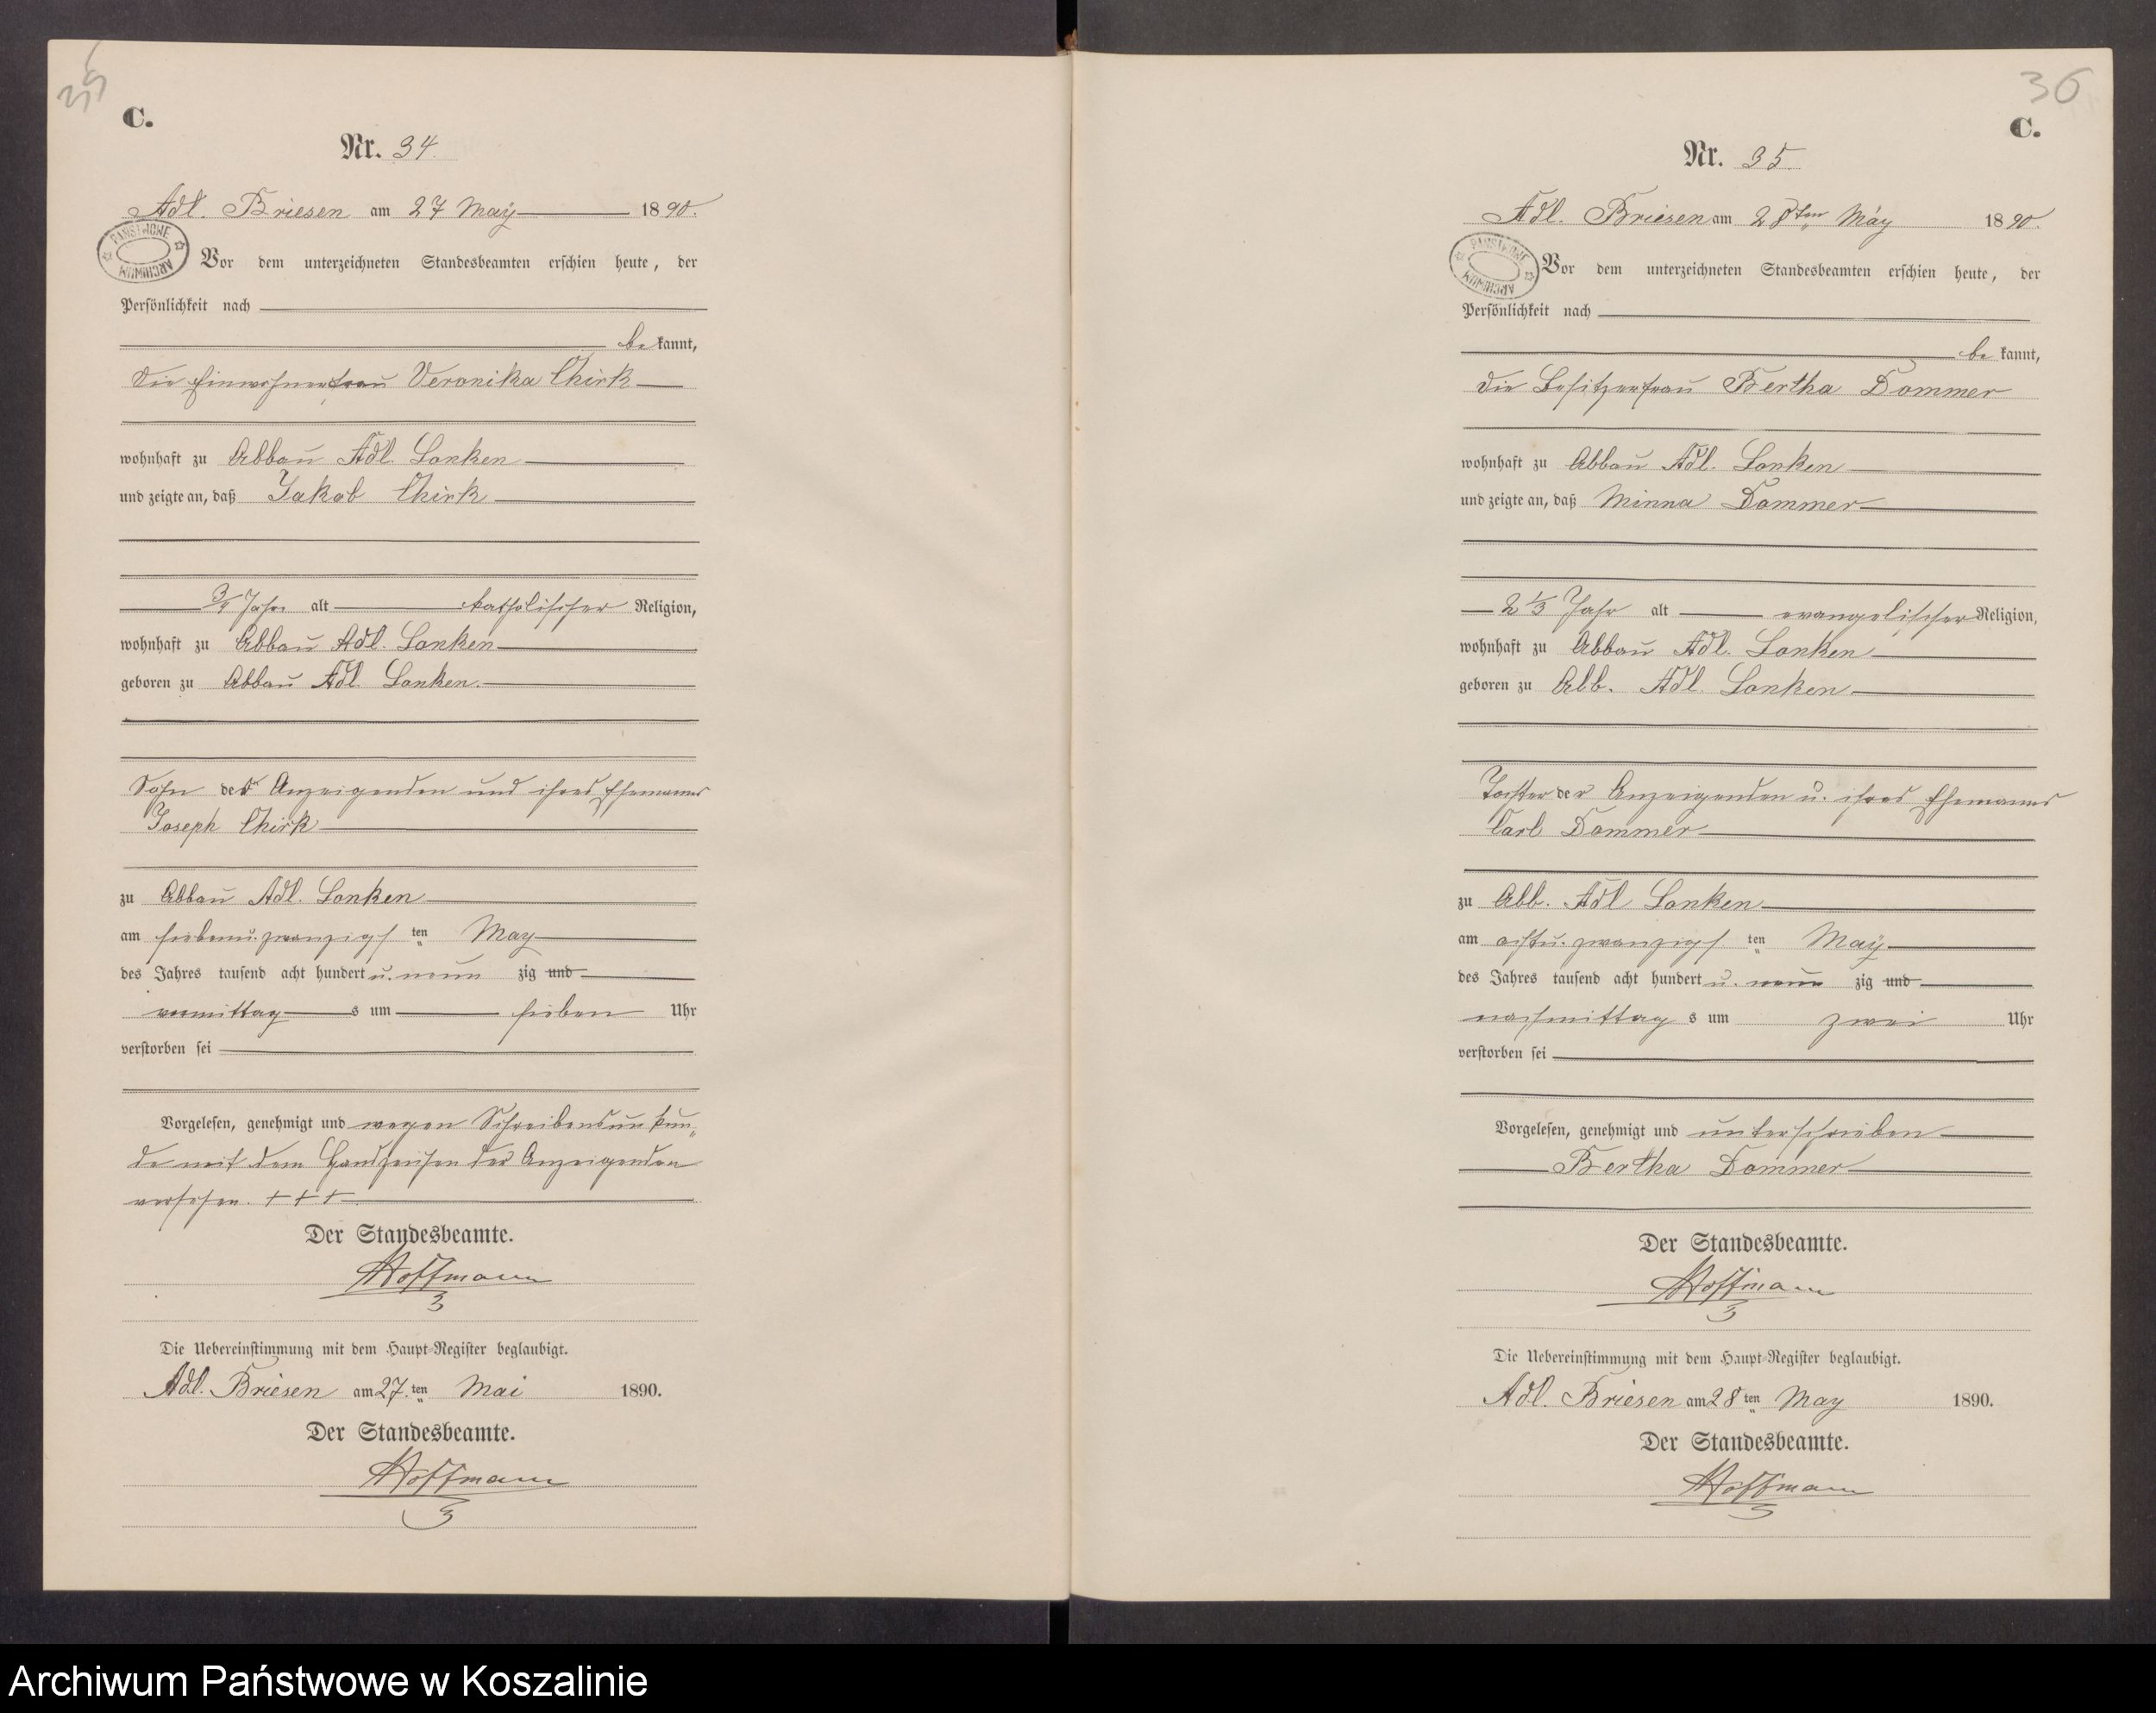 35
C.
Nr. 34.
Adl. Briesen am 27 May 1890.
PAŃSTWOWE ARCHIWUM
Vor dem unterzeichneten Standesbeamten erschien heute, der
Persönlichkeit nach
bekannt,
die Einwohnerfrau Veronika Chirk
wohnhaft zu Abbau Adl. Lanken
und zeigte an, daß Jakob Chirk
3/4 Jahr alt katholischer Religion,
wohnhaft zu Abbau Adl. Lanken
geboren zu Abbau Adl. Lanken.
Sohn der Anzeigenden und ihres Ehemannes
Joseph Chirk
zu Abbau Adl. Lanken
am siebenu.zwanzigsten May
des Jahres tausend acht hundert u. neunzig und
vormittags um sieben Uhr
verstorben sei
Vorgelesen, genehmigt und wegen Schreibensunkun„
de mit dem Handzeichen der Anzeigenden
versehen. +++
Der Standesbeamte.
Hoffmann
Die Uebereinstimmung mit dem Haupt-Register beglaubigt.
Adl. Briesen am 27.ten Mai 1890.
Der Standesbeamte.
Hoffmann
36
C.
Nr. 35.
Adl. Briesen am 28ten May 1890.
PAŃSTWOWE ARCHIWUM
Vor dem unterzeichneten Standesbeamten erschien heute, der
Persönlichkeit nach
bekannt,
die Besitzerfrau Bertha Dommer
wohnhaft zu Abbau Adl. Lanken
und zeigte an, daß Minna Dommer
2 1/3 Jahr alt evangelischer Religion,
wohnhaft zu Abbau Adl. Lanken
geboren zu Abb. Adl. Lanken
Tochter der Anzeigenden u. ihres Ehemannes
Carl Dommer
zu Abb. Adl Lanken
am achtu.zwanzigsten May
des Jahres tausend acht hundert u. neunzig und
nachmittags um zwei Uhr
verstorben sei
Vorgelesen, genehmigt und unterschrieben
Bertha Dommer
Der Standesbeamte.
Hoffmann
Die Uebereinstimmung mit dem Haupt-Register beglaubigt.
Adl. Briesen am 28ten May 1890.
Der Standesbeamte.
Hoffmann
Archiwum Państwowe w Koszalinie